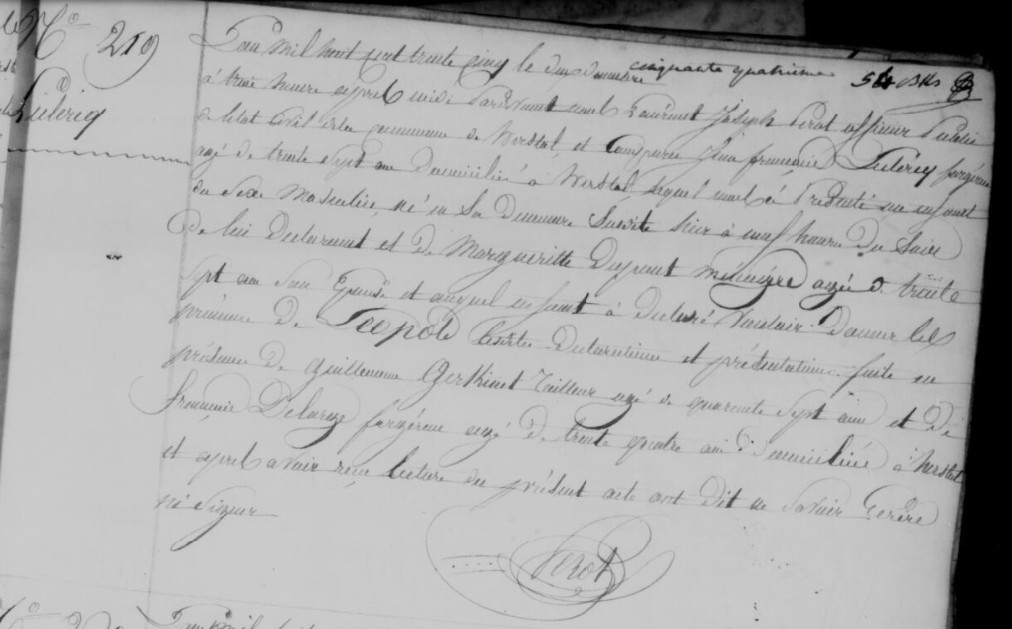 No 219
Leclercq
L'an mil huit cent trente cinq le deux décembre
cinquante quatrieme
à trois heure après midi Pardevant nous Laurent Joseph Perot officier Public
de l'état civil de la commune de Herstal est comparu Jean françois Leclerq forgeron
agé de trente sept ans Domicilié à Herstal lequel nous à Présenté un enfant
du Sexe Masculin né en Sa Demeure Susdite hier à neuf heure Du Soire
De lui Declarant et De Margueritte Dupont ménagère agée De trente
sept ans Son Epouse et auquel enfant à declaré Vouloir Donner les
prénoms De Leopold Cette Declaration et présentation faite en
présence De guillaume Gerkinet Tailleur agé De quarente Sept ans et De
françois Delarge forgéron agé De trente quatre ans Domicilié à herstal
et après avoir recu lecture du présent acte ont Dit ne Savoir Ecrire
ni Signer
Perot
L'an mil